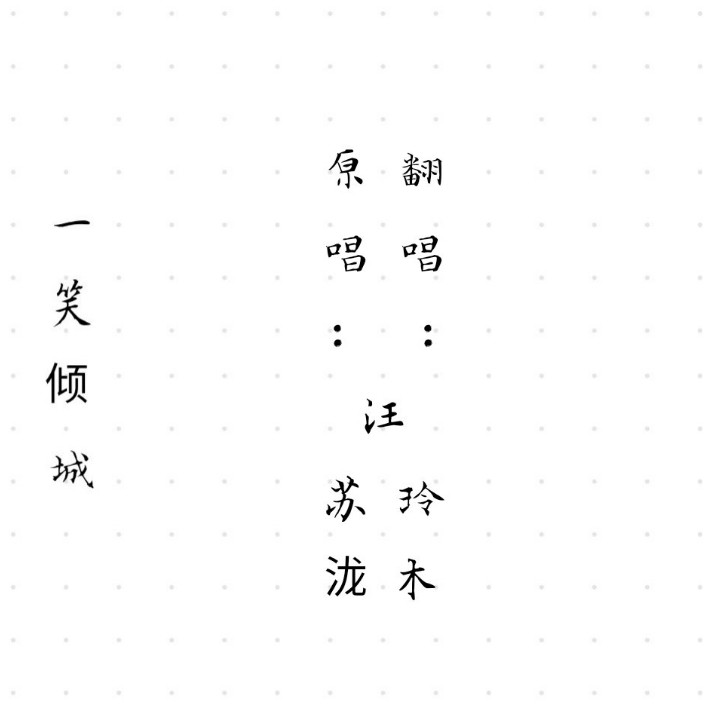 一笑倾城
原唱：汪苏泷
翻唱：玲木